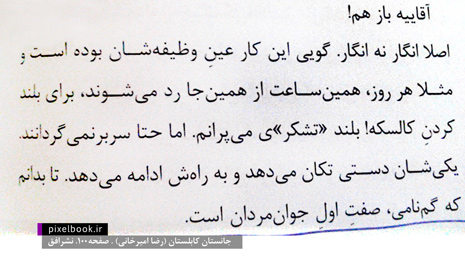 آقاییه باز هم!
اصلا انگار نه انگار. گویی این کار عینِ وظیفه‌شان بوده است و
مثلا هر روز، همین‌ساعت از همین‌جا رد می‌شوند، برای بلند
کردنِ کالسکه! بلند «تشکر»ی می‌پرانم. اما حتا سربرنمی‌گردانند.
یکی‌شان دستی تکان می‌دهد و به راه‌ش ادامه می‌دهد. تا بدانم
که گم‌نامی، صفتِ اولِ جوان‌مردان است.
pixelbook.ir
جانستان کابلستان (رضا امیرخانی) . صفحه۱۰۰. نشرافق